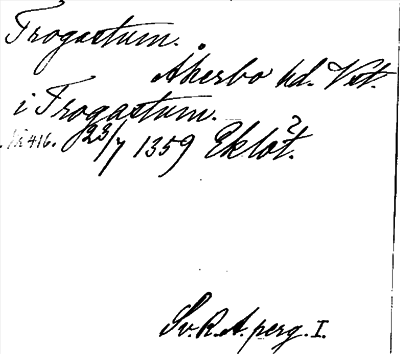 Trogastum.
Åkerbo hd. Vst.
i Trogastum.
416. 23/7 1359 Eklöt.
?
Sv. R. A. perg. I.